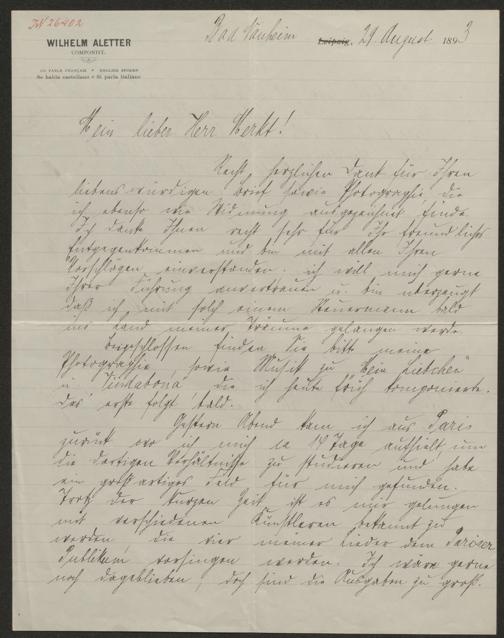 IN 26402
WILHELM ALETTER
COMPONIST.
ON PARLE FRANÇAIS * ENGLISH SPOKEN
Se habla castellano * Si parla italiano
Bad Nauheim Leipzig, 29 August 1893
Mein lieber Herr Merkt!
Recht herzlichen Dank für Ihren
liebenswürdigen Brief sowie Photographie die
ich ebenso wie Widmung ausgezeichnet finde
Ich danke Ihnen recht sehr für Ihr freundliches
Entgegenkommen und bin mit allen Ihren
Vorschlägen einverstanden. ich will mich gerne
Ihrer Führung anvertrauen u. bin überzeugt
daß ich mit solch einem Steuermann bald
ins Land meiner Träume gelangen werde
Beigeschlossen finden Sie bitte meine
Photographie, sowie Musik zu "Mein Liebchen"
u. die ich heute früh komponierte.
Das erste folgt bald.
Gestern Abend kam ich aus Paris
zurück wo ich mich ca 14 Tage aufhielt um
die dortigen Verhältnisse zu studieren und habe
ein großartiges Feld für mich gefunden.
Trotz der kurzen Zeit ist es mir gelungen
mit verschiedenen Künstlern bekannt zu
werden, die vier meiner Lieder dem Pariser
Publikum vorsingen werden. Ich wäre gerne
noch dageblieben, doch sind die Ausgaben zu groß.